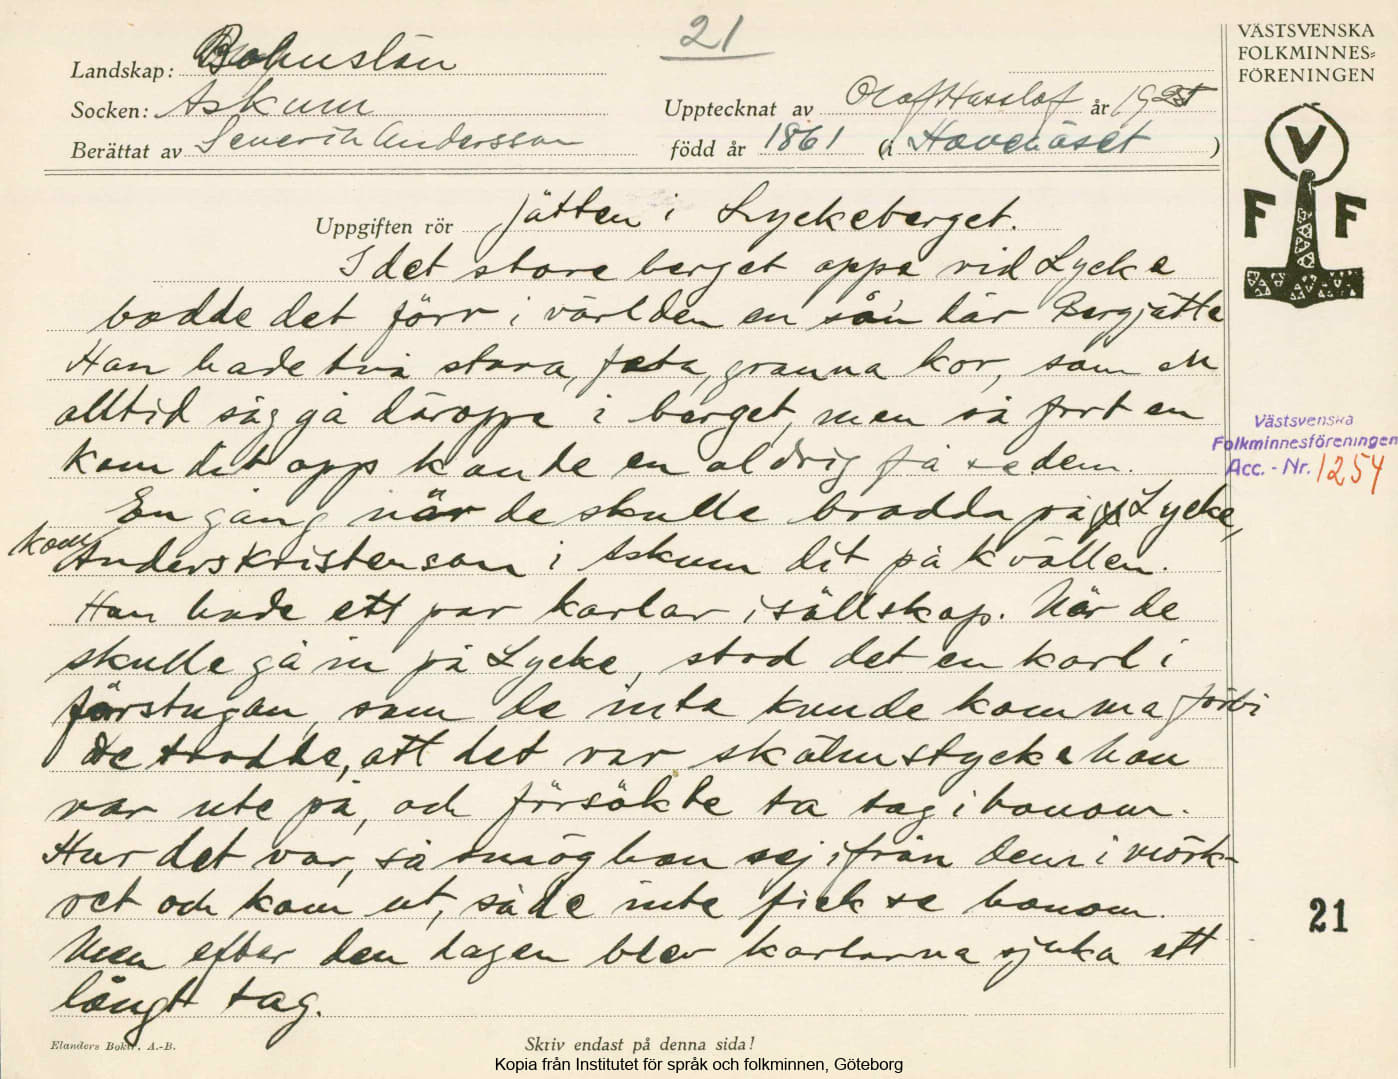 21
Landskap: Bohuslän
Socken: Askum
Berättat av Severin Andersson
Upptecknat av Olof Hasslöf år 1925
född år 1861 (i Hovenäset )
VÄSTSVENSKA
FOLKMINNES=
FÖRENINGEN
V
F F
Uppgiften rör Jätten i Lyckeberget.
I det store berget oppe vid Lycke
bodde det förr i världen en så'n där Bergjätte
Han hade två stora, feta, granna kor, som en
alltid såg gå däroppe i berget, men så fort en
kom dit opp kunde en aldrig få se dem.
En gång när de skulle brodda på Lycke,
kom Anders Kristenson i Askum dit på kvällen.
Han hade ett par karlar i sällskap. När de
skulle gå in på Lycke, stod det en karl i
förstugan, som de inte kunde komma förbi
De trodde, att det var skälmstycke han
var ute på, och försökte ta tag i honom.
Hur det var, så smög han sej ifrån dem i mörk-
ret och kom ut, så de inte fick se honom.
Men efter den dagen blev karlarna sjuka ett
långt tag.
Västsvenska
Folkminnesföreningen
Acc. - Nr. 1254
21
Elanders Boktr. A.-B.
Skriv endast på denna sida!
Kopia från Institutet för språk och folkminnen, Göteborg